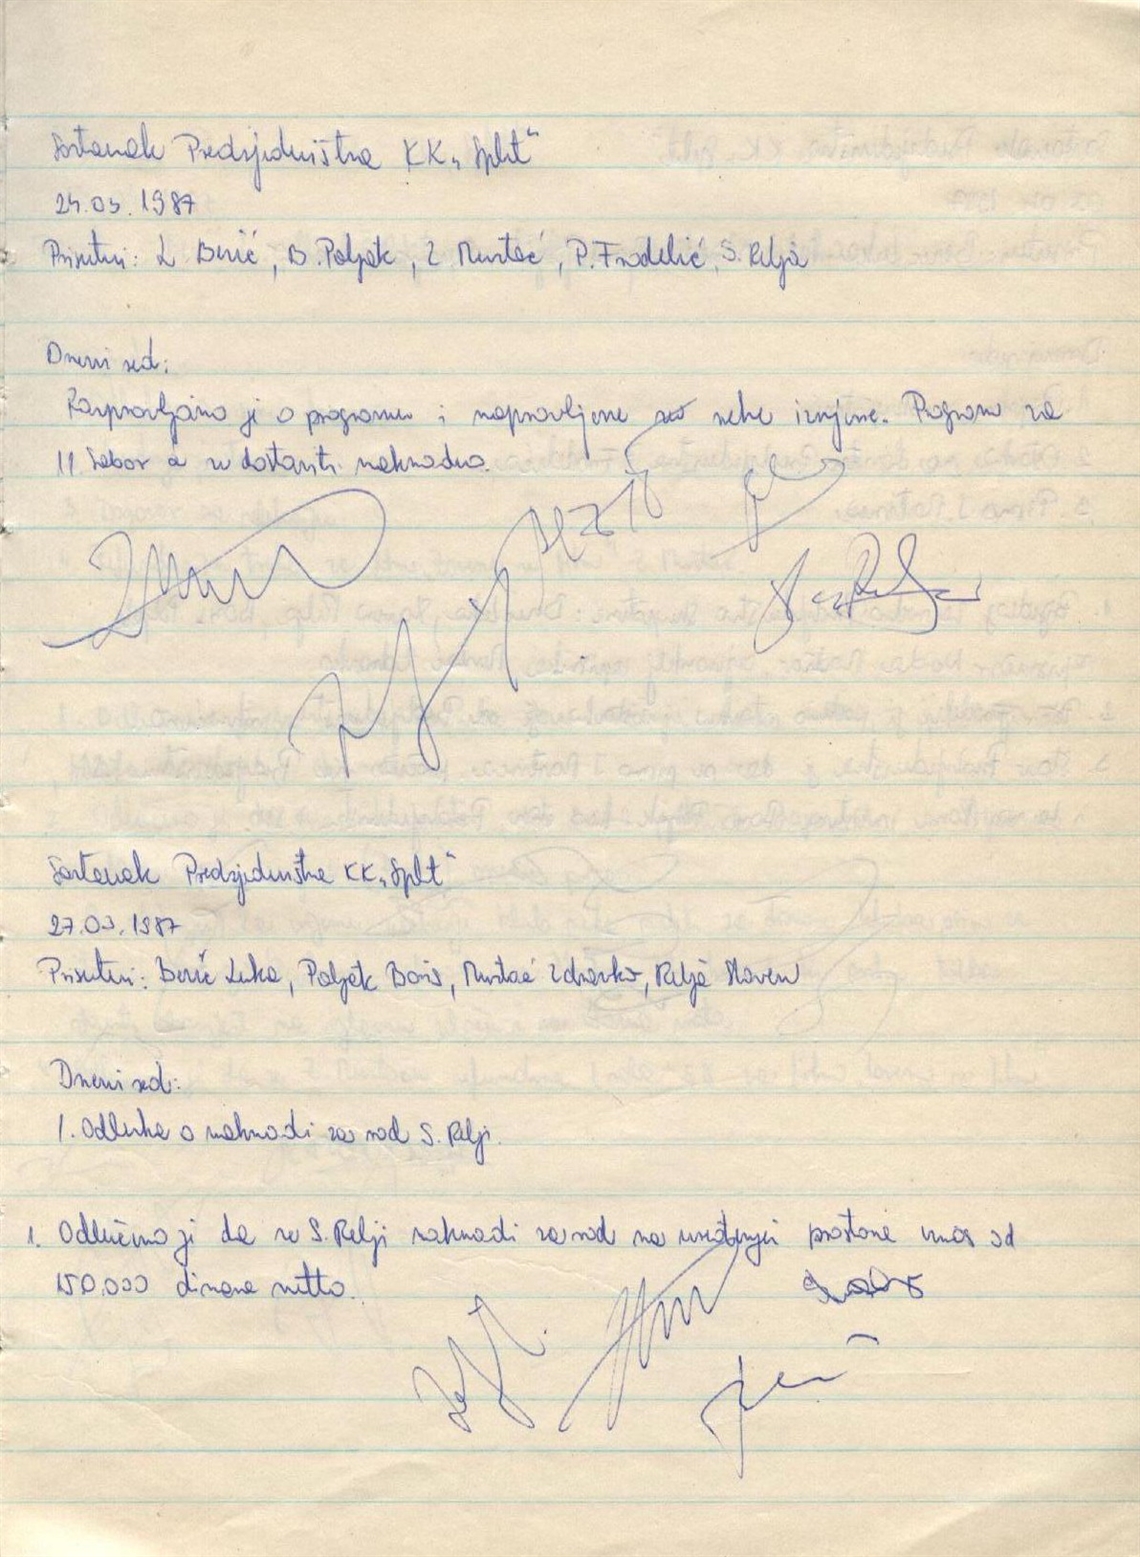 Sastanak Predsjedništva KK „Split“
24.03.1987
Prisutni: L Berić, B. Poljak, Z. Mustać, P. Fradelić, S. Relja
Dnevni red:
Raspravljano je o programu i napravljene su neke izmjene. Program za
11. Sabor će se dostaviti naknadno.
Sastanak Predsjedništva KK „Split“
27.03.1987
Prisutni: Berić Luka, Poljak Boris, Mustać Zdravko, Relja Slaven
Dnevni red:
1. Odluka o naknadi za rad S. Relji.
1. Odlučeno je da se S. Relji naknadi za rad na uređenju prostora iznos od
150.000 dinara netto.